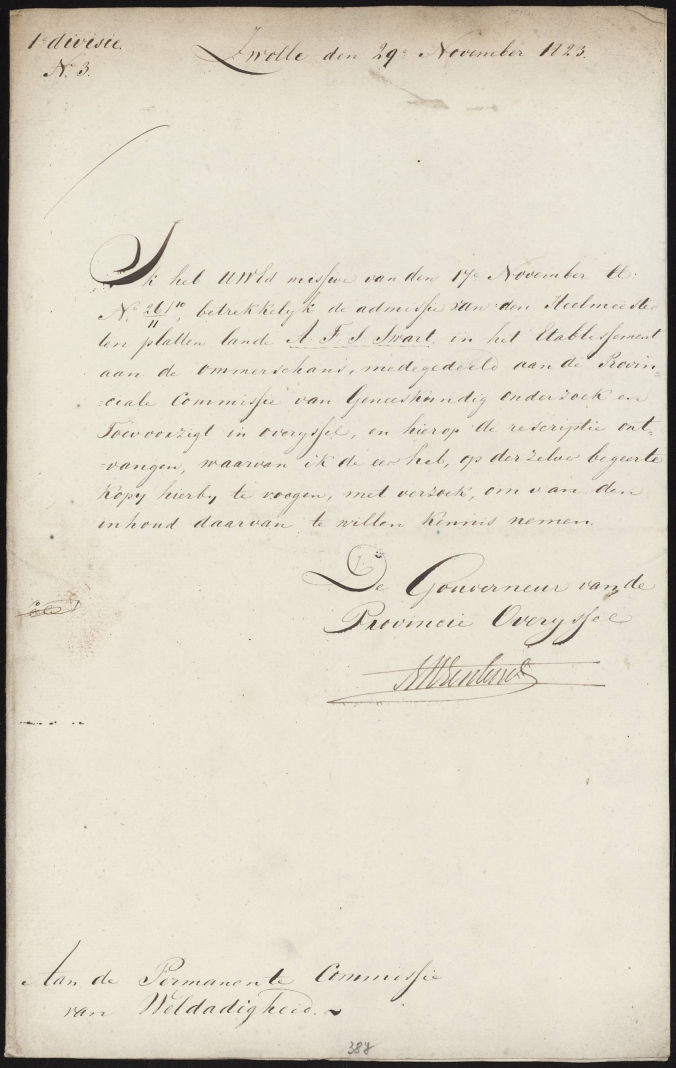 1e divisie.
N. 3.
Zwolle den 29e November 1823.
Ik heb UWEd missive van den 17e November ll:
No. betrekkelijk de admissie van den Heelmeester
ten platten lande A. F. S. Swart, in het Etablissement
aan de Ommerschans, medegedeeld aan de Provin=
=ciale Commissie van Geneeskundig onderzoek en
Toevoorzigt in Overyssel, en hierop de rescriptie ont=
=vangen, waarvan ik de eer heb, op derzelver begeerte
Kopy hierby te voegen, met verzoek, om van den
inhoud daarvan te willen kennis nemen.
De Gouverneur van de
Provincie Overyssel
Aan de Permanente Commissie
van Weldadigheid.
387